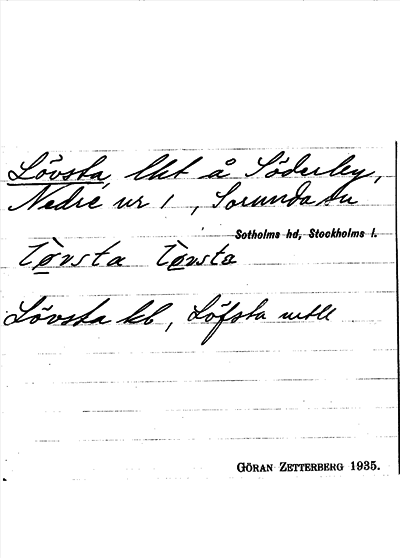 Lövsta, lht å Söderby,
Nedre nr 1, Sorunda sn
Sotholms hd, Stockholms l.
Lövsta kb, Löfsta mtll
GÖRAN ZETTERBERG 1935.